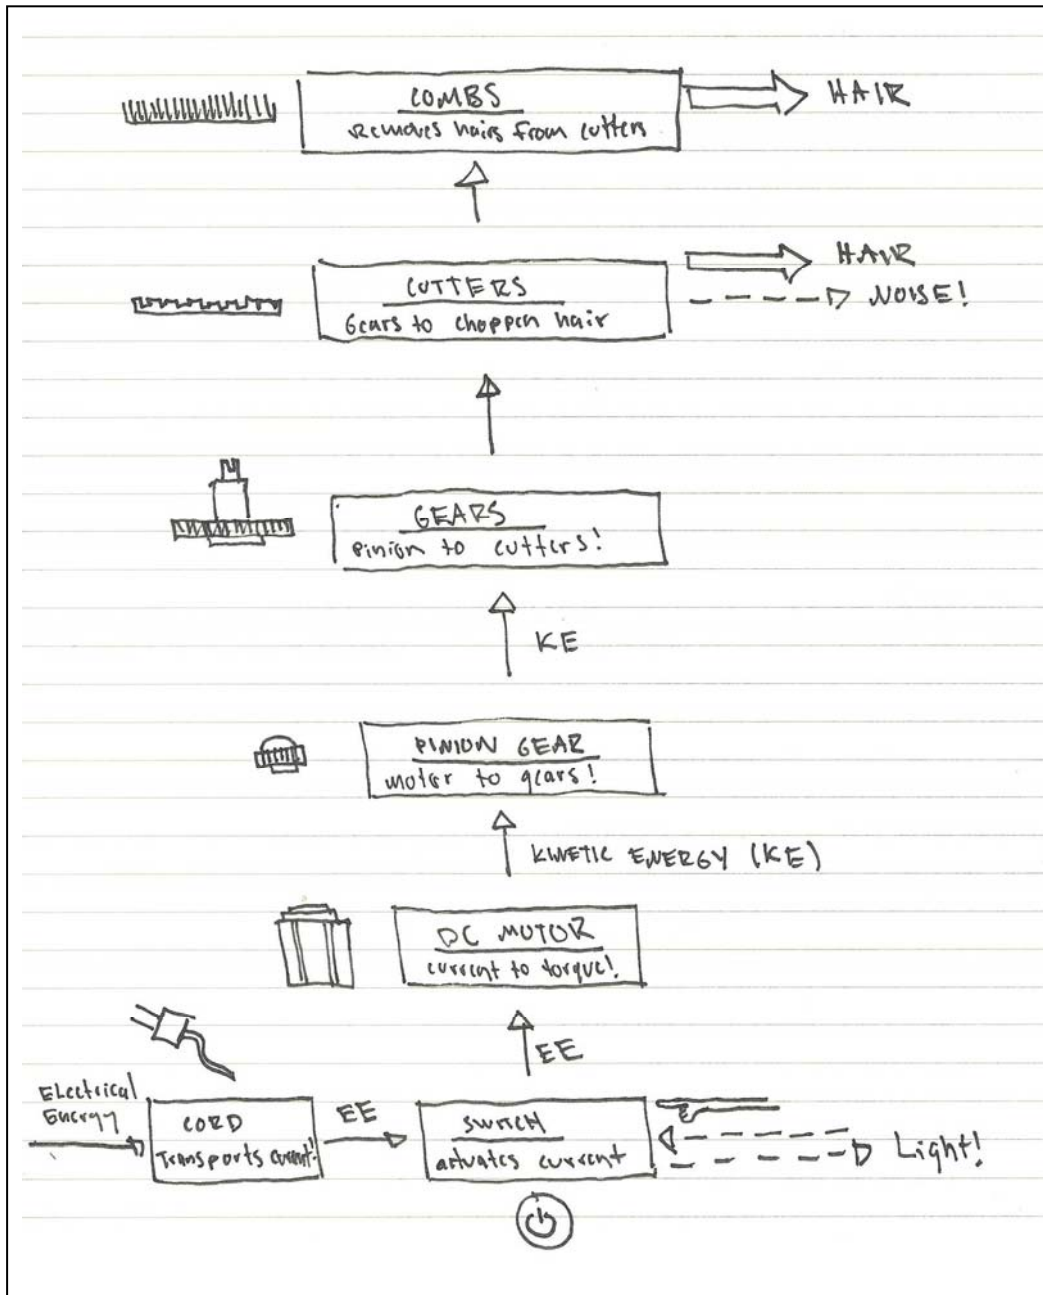 COMBS
Removes hairs from cutters
HAIR
CUTTERS
Gears to choppen hair
HAIR
NOISE!
GEARS
pinion to cutters!
KE
PINION GEAR
motor to gears!
KINETIC ENERGY (KE)
DC MOTOR
current to torque!
EE
Electrical
Energy
CORD
Transports current!
EE
SWITCH
actuates current
Light!